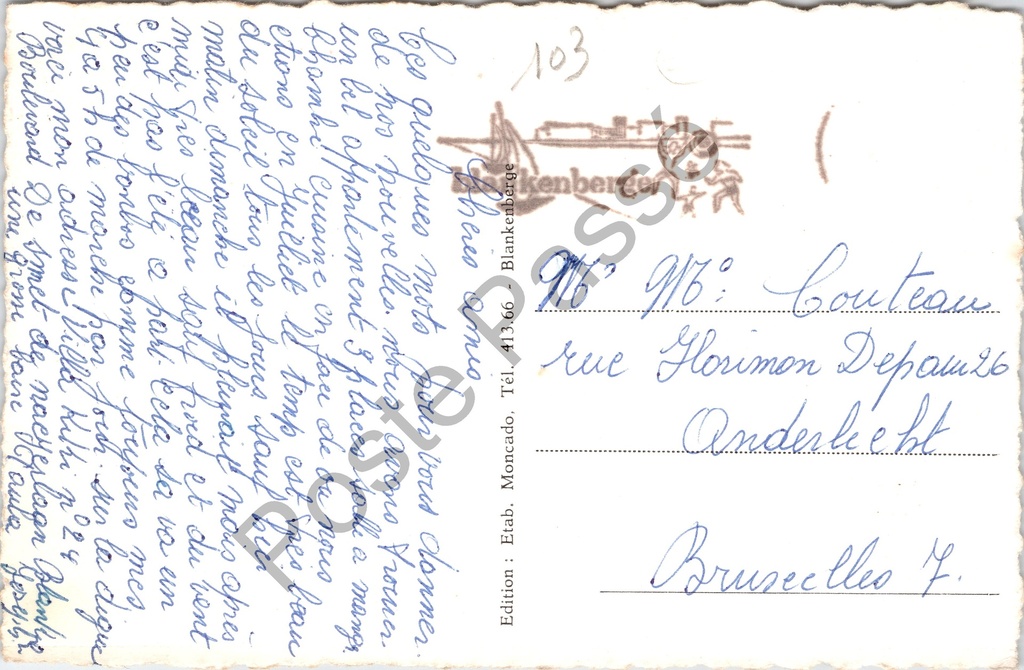 103
Blankenberge
Chères amies
Ces quelques mots pour vous donner
de nos nouvelles. nous avons trouver
un bel appartement 3 places salle a mange
chambre cuisine en face de la nous
étions en Juillet le temps est très beau
du soleil tous les jours sauf hier
matin dimanche il pleuvait mais après
midi très beau sauf froid et du vent
c'est pas gété a part cela sa va un
peu des bombes comme toujours mes
4 a 5 h de marche par jour sur la digue
voici mon adresse Villa Kiki n° 24
Boulevard De Smet de naeyer laan Blanke
un gros bain Paula Joseph
Edition : Etab. Moncado, Tél. 413.66 - Blankenberge
Mr Me: Couteau
rue Florimon Depauw 26
Anderlecht
Bruxelles 7.
Poste Passé